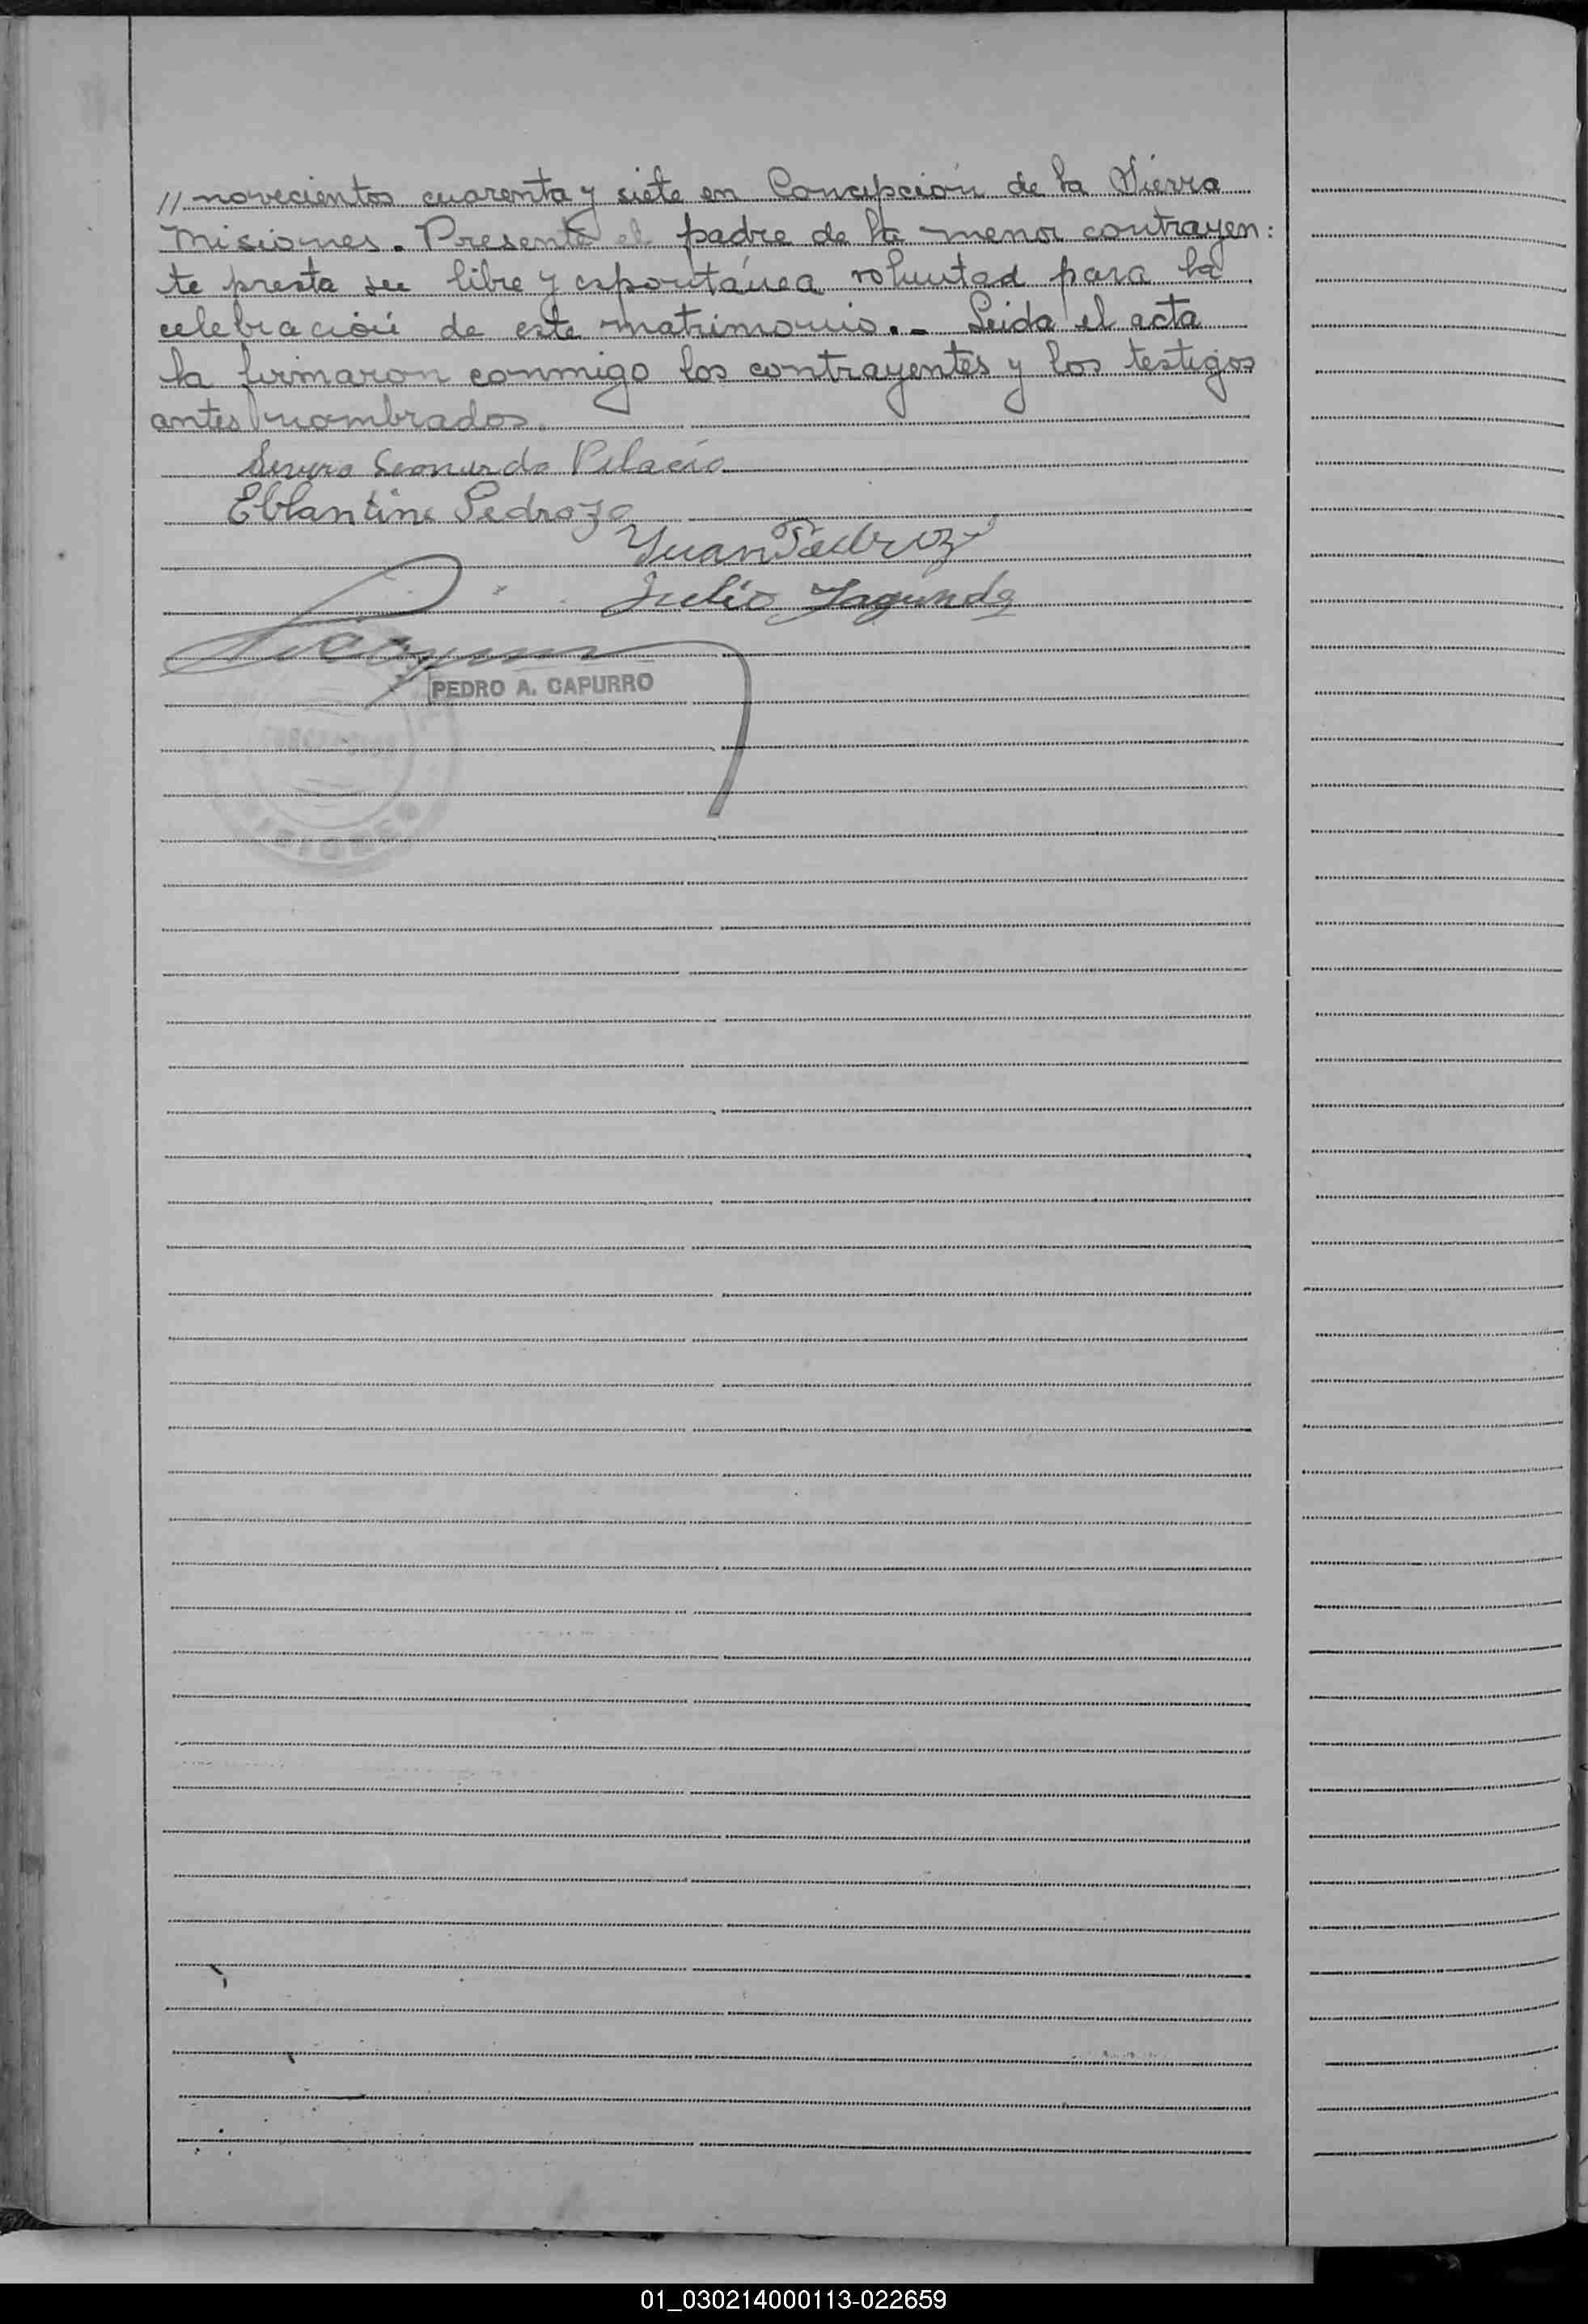 // novecientos cuarenta y siete en Concepción de la Sierra
Misiones. Presente el padre de la menor contrayen:
te presta su libre y espontánea voluntad para la
celebración de este matrimonio.- Leida el acta
la firmaron conmigo los contrayentes y los testigos
antes nombrados.
Leonardo
Eblantine Pedrozo
Juan Pedrozo
Julio
PEDRO A. CAPURRO
01_030214000113-022659